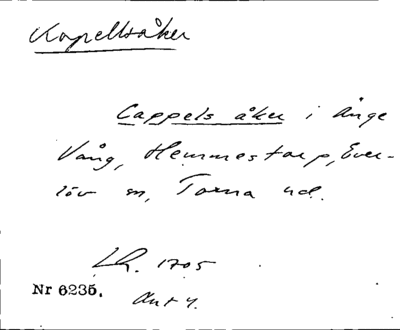 Kapellsåker
Cappels åker i Ånge
Vång, Hemmestorp, Ever-
löv sn, Torna hd.
LR. 1705
Nr 6235. Ant 4.